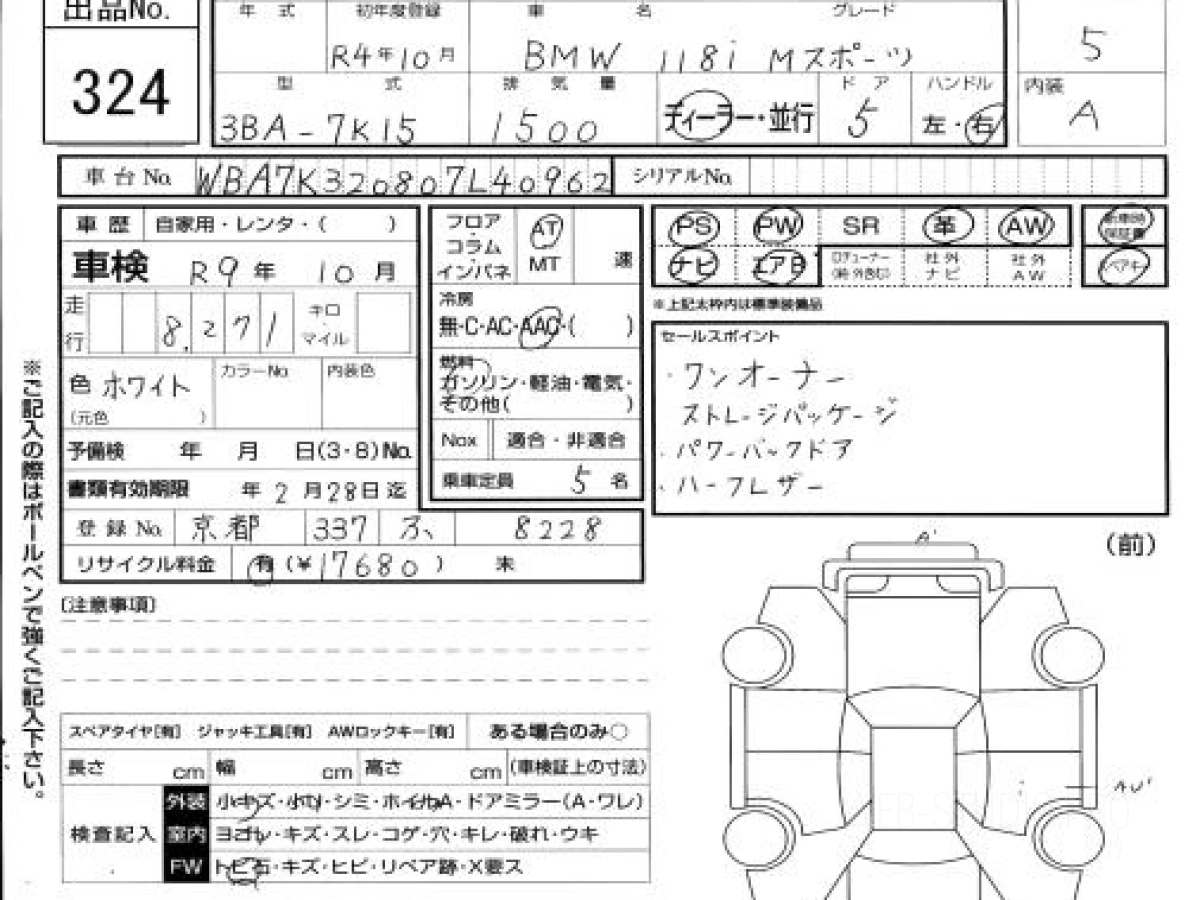 出品No.
324
年 式 初年度登録 車 名 グレード
R4年10月 BMW 118i Mスポーツ
5
型 式 排 気 量 ド ア ハンドル 内装
3BA-7K15 1500 ディーラー・並行 5 左・右 A
車台No. WBA7K320807L40962 シリアルNo.
車 歴 自家用・レンタ・( )
車検 R9年 10月
走行 8,271 キロ・マイル
色 ホワイト カラーNo. 内装色
(元色 )
予備検 年 月 日(3・8)No.
書類有効期限 年 2月28日迄
登録No. 京都 337 ふ 8228
リサイクル料金 有(¥17680) 未
フロア・コラム・インパネ AT MT 速
冷房
無・C・AC・AAC・( )
燃料
ガソリン・軽油・電気・
その他( )
Nox 適合・非適合
乗車定員 5名
PS PW SR 革 AW 新車時保証書
ナビ エアB ロデューナー(純・外含む) 社外ナビ 社外AW スペアキー
※上記太枠内は標準装備品
セールスポイント
・ワンオーナー
ストレージパッケージ
・パワーバックドア
・ハーフレザー
※ご記入の際はボールペンで強くご記入下さい。
〔注意事項〕
(前)
A'
AU'
スペアタイヤ[有] ジャッキ工具[有] AWロックキー[有] ある場合のみ○
長さ cm 幅 cm 高さ cm (車検証上の寸法)
検査記入
外装 小キズ・小凹・シミ・ホイルA・ドアミラー(A・ワレ)
室内 ヨゴレ・キズ・スレ・コゲ・穴・キレ・破れ・ウキ
FW トビ石・キズ・ヒビ・リペア跡・X要ス